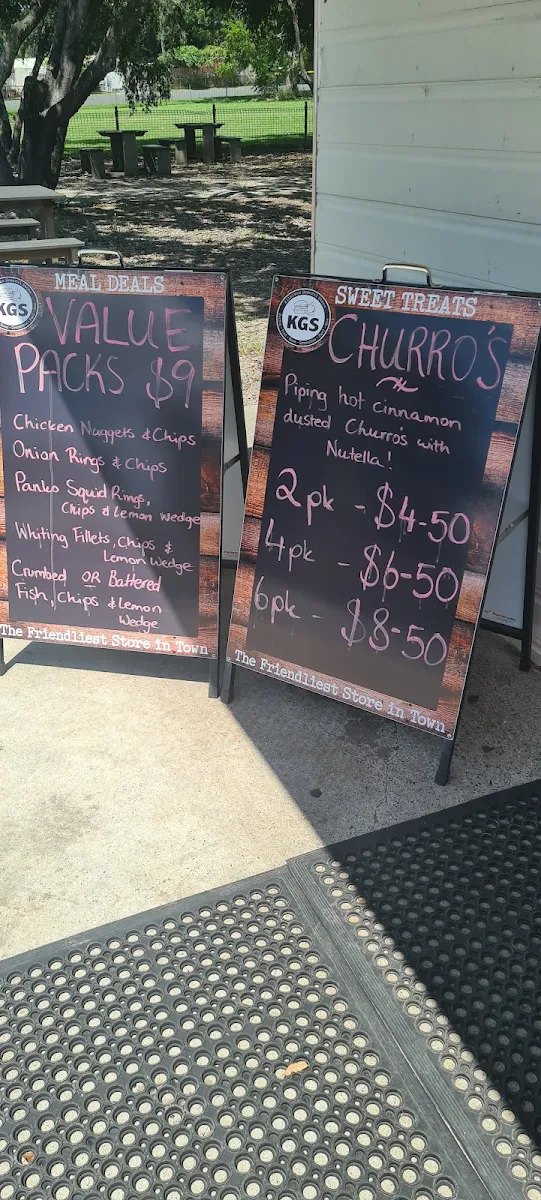 MEAL DEALS
KGS
VALUE
PACKS $9
Chicken Nuggets & Chips
Onion Rings & Chips
Panko Squid Rings,
Chips & Lemon Wedge
Whiting Fillets, Chips &
Lemon Wedge
Crumbed OR Battered
Fish, Chips & Lemon
Wedge
The Friendliest Store in Town
SWEET TREATS
KGS
CHURRO'S
Piping hot cinnamon
dusted Churro's with
Nutella!
2pk - $4-50
4pk - $6-50
6pk - $8-50
The Friendliest Store in Town